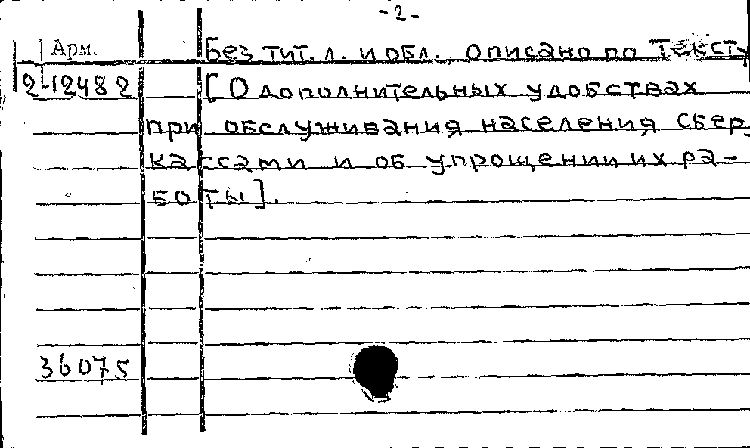 -2-
Арм. Без тит. л. и обл. Описано по тексту
2-12482 [О дополнительных удобствах
при обслуживания населения сбер
кассами и об упрощении их ра-
боты].
36075